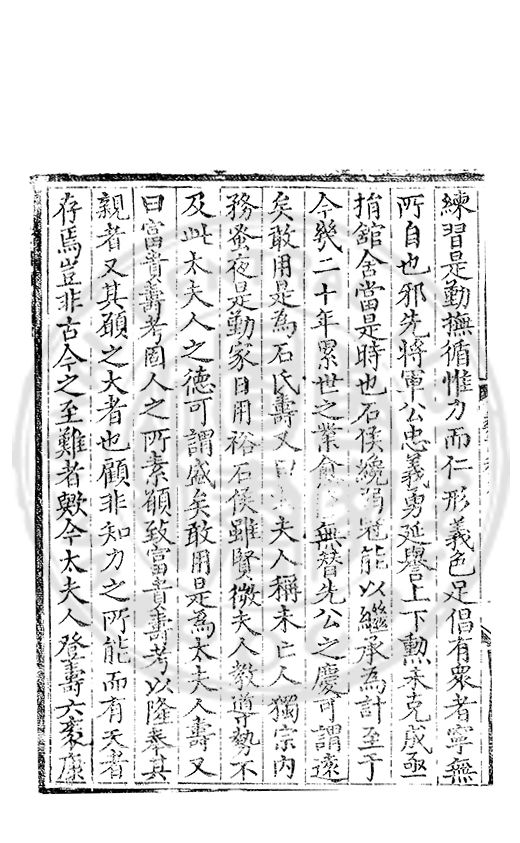 練習是勤撫循惟力而仁形義色足倡有衆者寧無
所自也邪先將軍公忠義勇延譽上下勲未克成亟
捐舘舍當是時也石侯纔弱冠能以繼承為計至于
今幾二十年累世之業無替先公之慶可謂遠
矣敢用是為石氏壽又曰夫人稱未亡人獨宗内
務蚤夜是勤家日用裕石侯雖賢微夫人教導勢不
及此太夫人之德可謂盛矣敢用是為太夫人壽又
曰富貴壽考國人之所素願致富貴壽考以隆奉其
親者又其願之大者也顧非知力之所能而有天者
存焉豈非古今之至難者歟今太夫人登壽六袠康